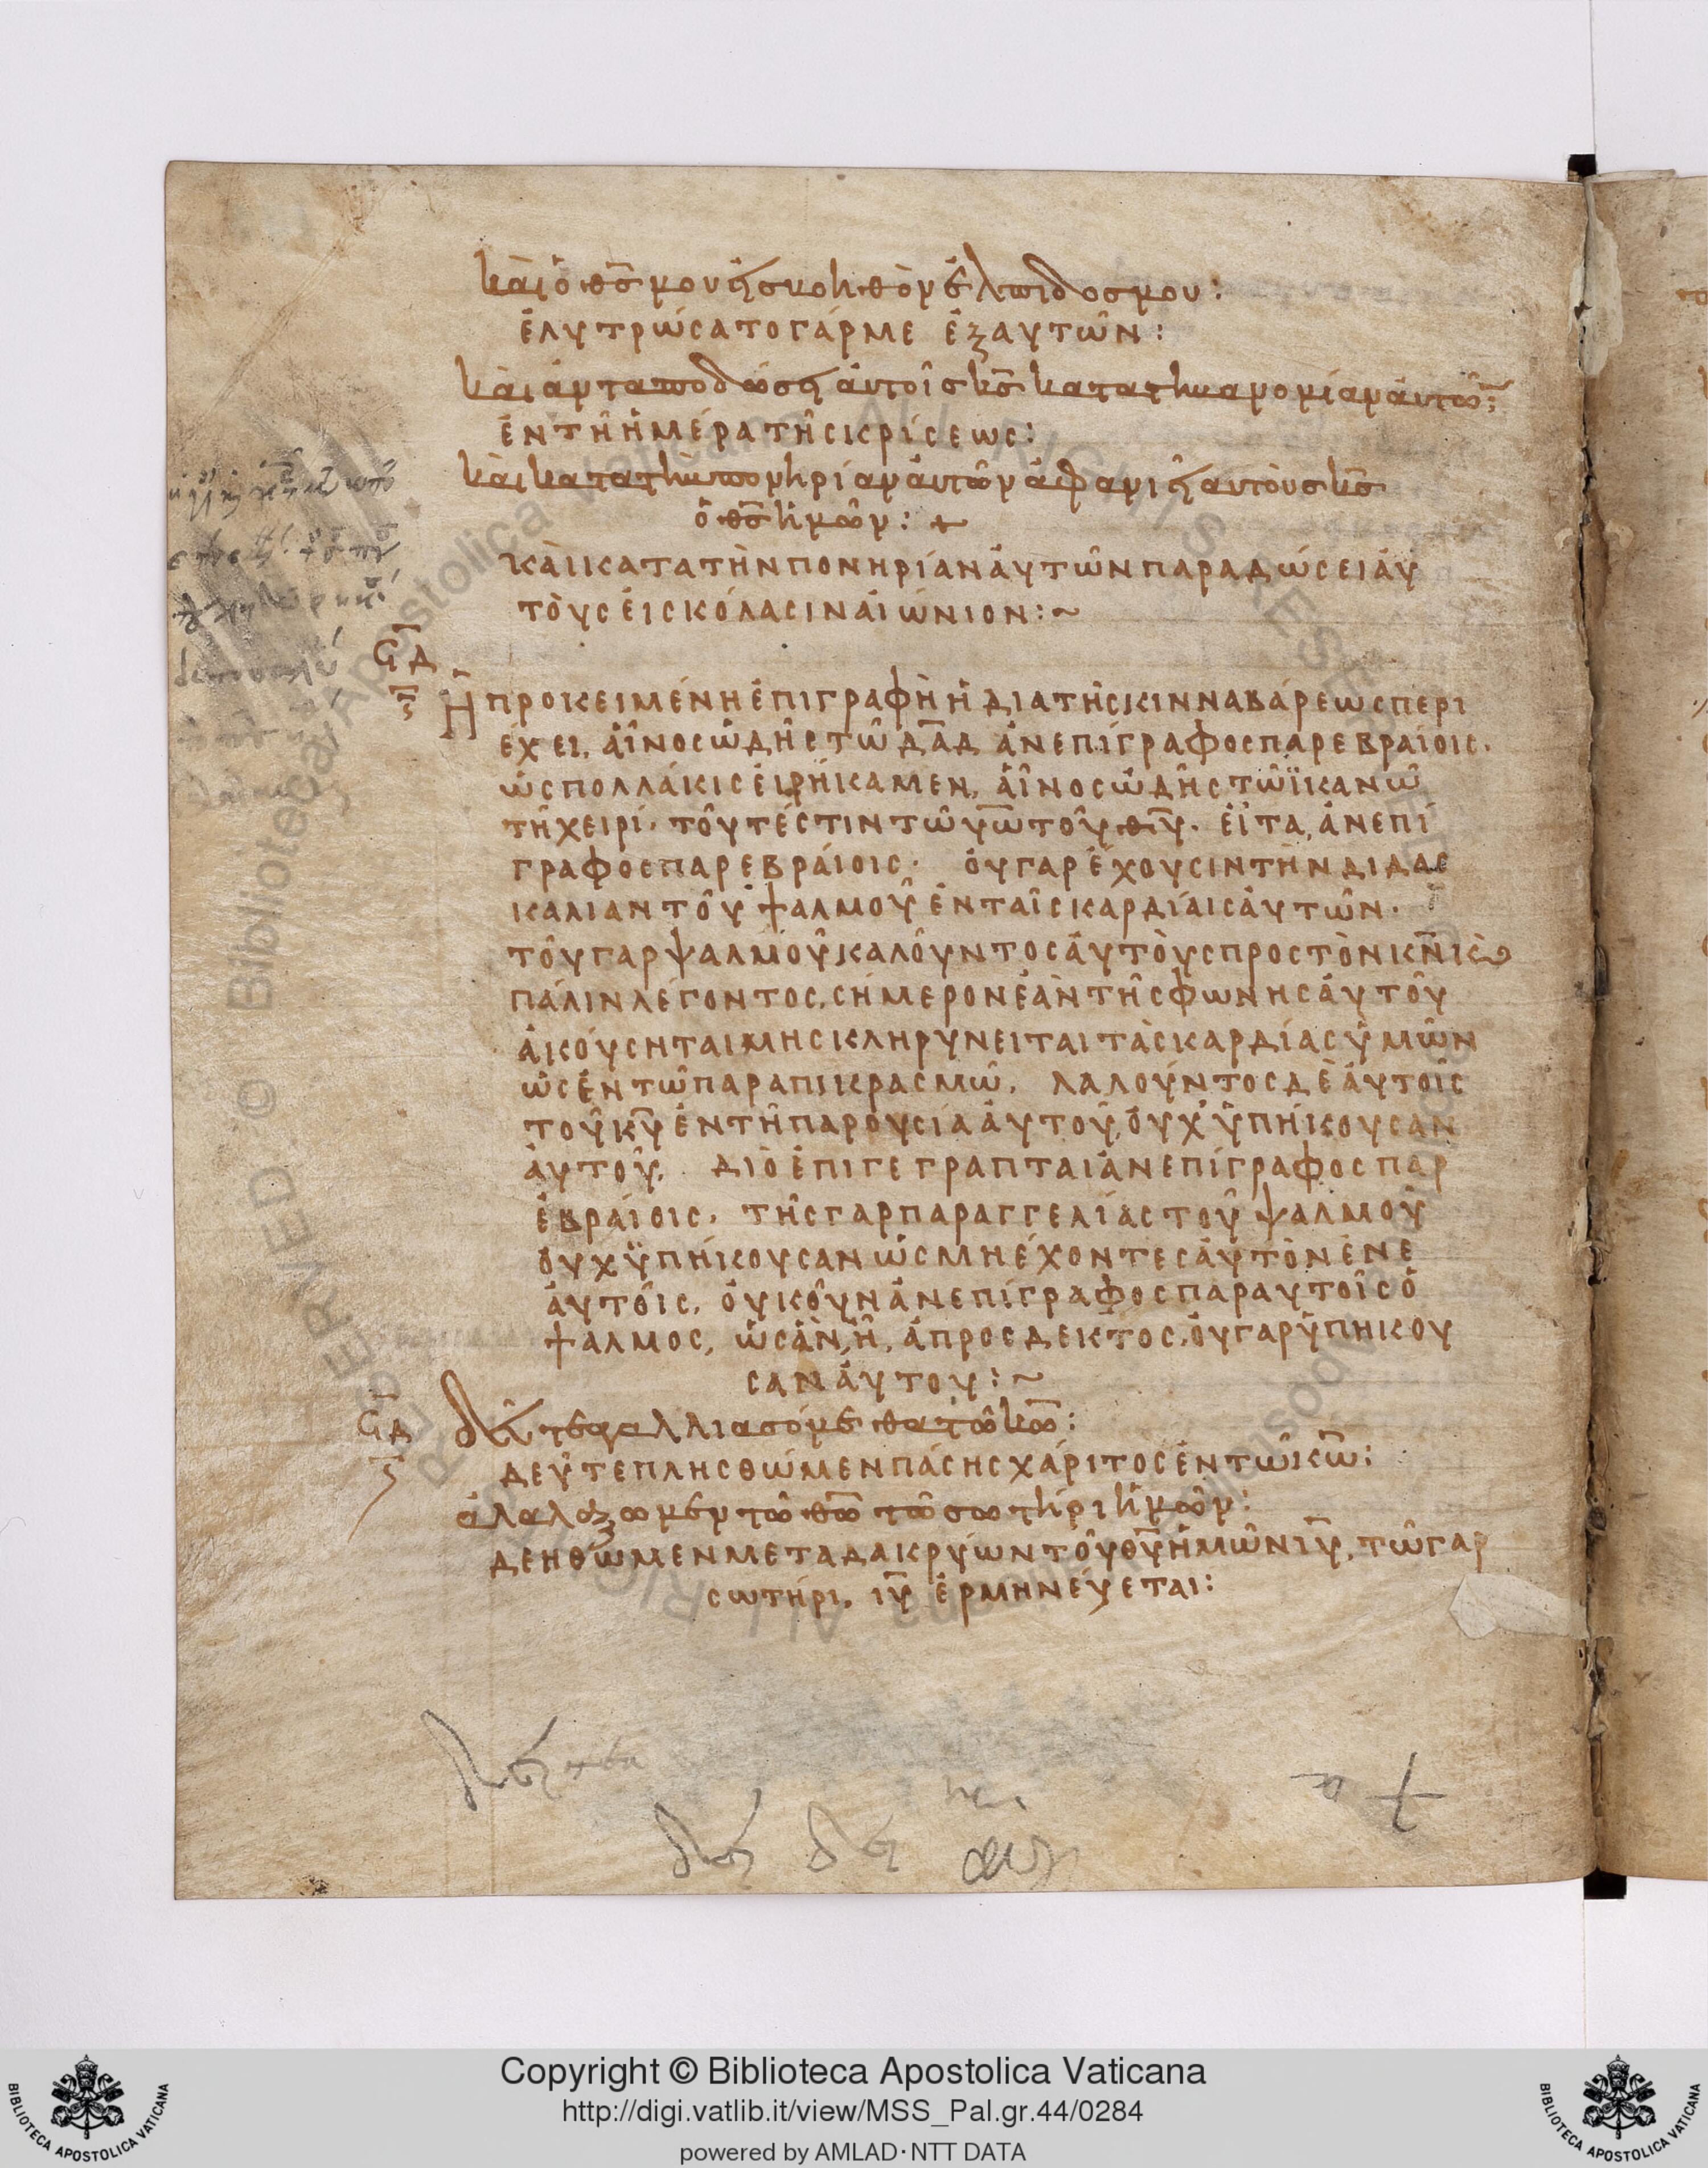 καὶ ὁ θς μου εἰς βοηθὸν ἐλπίδος μου:
ἐλυτρώσατο γάρ με ἐξ αυτῶν:
καὶ ἀνταποδώσει ἀυτοῖς κς κατα τὴν ἀνομίαν ἀυτῶν:
ἐν τῆ ἡμέρα τῆς κρίσεως:
καὶ κατα τὴν πονηρίαν ἀυτῶν ἀφανιεῖ αυτοὺς κς
ὁ θς ἡμῶν: +
καὶ κατα τὴν πονηρίαν ἀυτῶν παραδώσει ἀυ
τὸυς ἐις κόλασιν αἰώνιον:~
ϟδ
Ἡ προκειμένη ἐπιγραφὴ ἡ δια τῆς κινναβάρεως περι
έχει, ἀῖνος ὠδῆς τῶ δαδ ἀνεπίγραφος παρ εβραίοις.
ὡς πολλάκις ἐιρήκαμεν, ἀῖνος ὠδῆς τῶ ϊκανῶ
τῆ χειρί. τοῦτέστιν τῶ υω τοῦ θυ. εἶτα, ἀνεπί
γραφος παρ εβράιοις. ὀυ γαρ ἔχουσιν τὴν διδας
καλιαν τοῦ ψαλμοῦ ἐν ταῖς καρδίαις ἀυτῶν.
τοῦ γαρ ψαλμοῦ καλοῦντος ἀυτὸυς προς τὸν κν κὸ
πάλιν λέγοντος, σήμερον ἐὰν τῆς φωνης ἀυτοῦ
ἀκόυσηται μη σκληρυνειται τὰς καρδίας ὑμῶν
ὡς ἐν τῶ παραπικρασμῶ, λαλοῦντος δὲ ἀυτοῖς
τοῦ κυ ἐν τῆ παρουσία ἀυτοῦ, ὀυχ ὑπήκουσαν
ἀυτοῦ, διὸ ἐπιγεγραπται ἀνεπίγραφος παρ
ἑβράιοις. τῆς γαρ παραγγελίας τοῦ ψαλμοῦ
ὀυχ ϋπήκουσαν ὡς μη έχοντες ἀυτὸν ἐν ἑ
ἀυτοῖς, ὀυκοῦν ἀνεπίγραφος παρ αυτοῖς ὁ
ψαλμος, ὡς ἀν, ῆ, ἀπροσδεκτος, ὀυ γαρ ὑπηκου
σαν ἀυτου:~
ϟδ δεῦτε αγαλλιασόμεθα τῶ κω:
δεῦτε πλησθώμεν πάσης χάριτος ἐν τῶ κω:
ἀλαλάξωμεν τῶ θω τῶ σωτῆρι ἡμῶν:
δεηθῶμεν μετα δακρύων τοῦ θυ ἡμῶν ιυ, τῶ γαρ
σωτήρι, ιυ ἑρμηνεύεται:
Copyright © Biblioteca Apostolica Vaticana
http://digi.vatlib.it/view/MSS_Pal.gr.44/0284
powered by AMLAD·NTT DATA
BIBLIOTECA APOSTOLICA VATICANA
BIBLIOTECA APOSTOLICA VATICANA